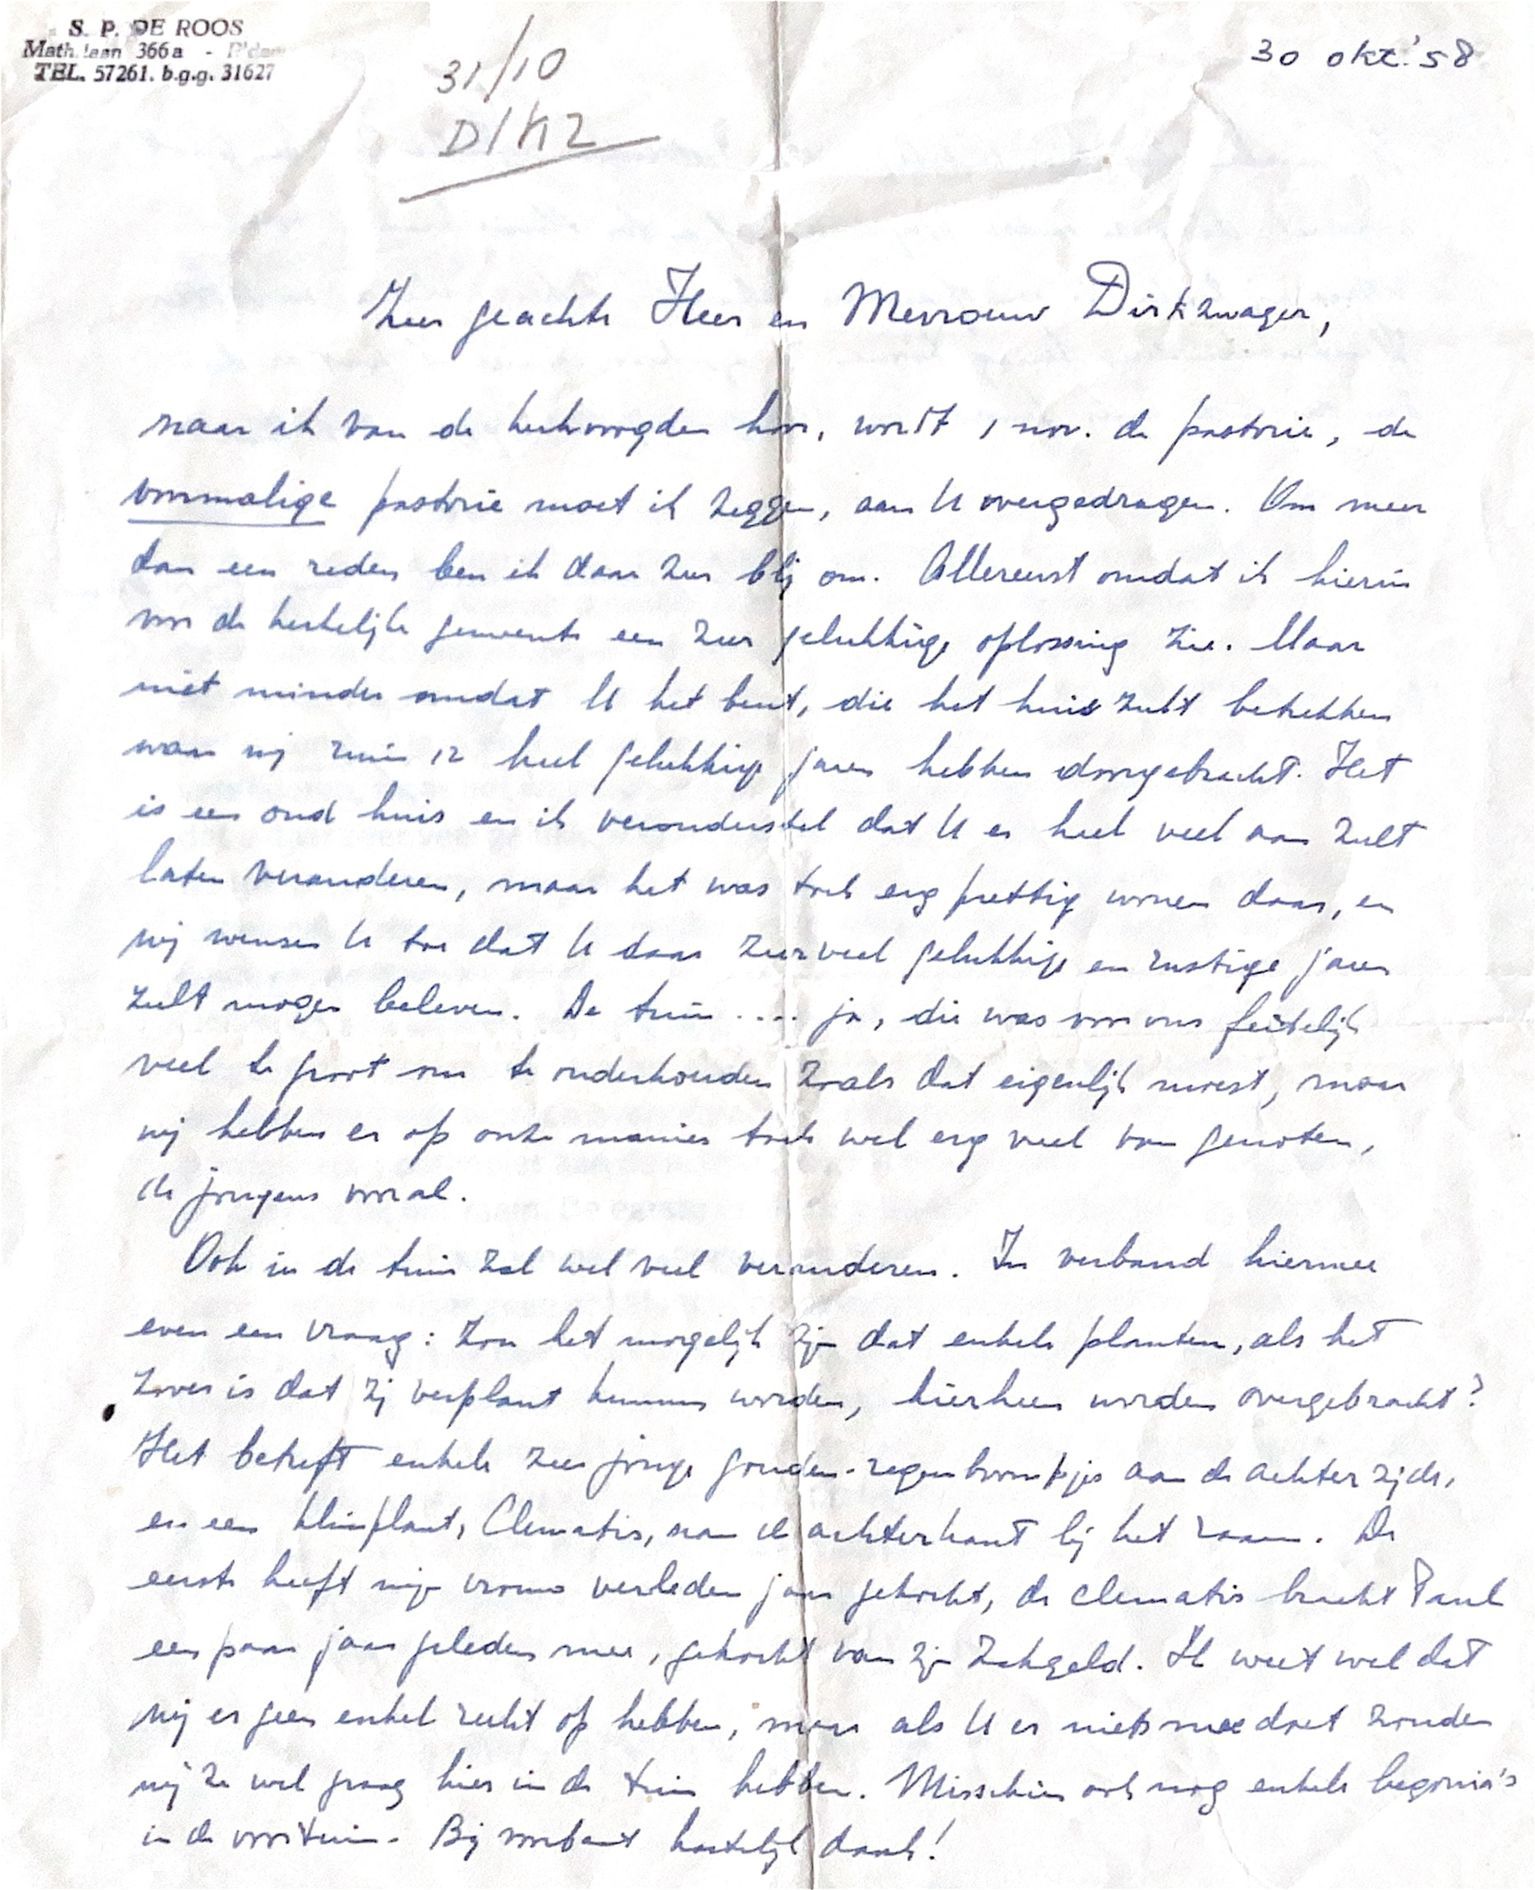 S. P. DE ROOS
Math.laan 366a - R'dam
TEL. 57261. b.g.g. 31627
30 okt.'58
31/10
D/KZ
Zeer geachte Heer en Mevrouw Dirkzwager,
naar ik van de kerkvoogden hoor, wordt 1 nov. de pastorie, de
voormalige pastorie moet ik zeggen, aan U overgedragen. Om meer
dan een reden ben ik daar zeer blij om. Allereerst omdat ik hierin
voor de kerkelijke gemeente een zeer gelukkige oplossing zie. Maar
niet minder omdat U het bent, die het huis zult betrekken
waar wij ruim 12 heel gelukkige jaren hebben doorgebracht. Het
is een oud huis en ik veronderstel dat U er heel veel aan zult
laten veranderen, maar het was toch erg prettig wonen daar, en
wij wensen U toe dat U daar zeer veel gelukkige en rustige jaren
zult mogen beleven. De tuin .... ja, die was voor ons feitelijk
veel te groot om te onderhouden zoals dat eigenlijk moest, maar
wij hebben er op onze manier toch wel erg veel van genoten,
de jongens vooral.
Ook in de tuin zal wel veel veranderen. In verband hiermee
even een vraag: zou het mogelijk zijn dat enkele planten, als het
zover is dat zij verplant kunnen worden, hierheen worden overgebracht?
Het betreft enkele zeer jonge gouden-regenboompjes aan de achterzijde,
en een klimplant, Clematis, aan de achterkant bij het raam. De
eerste heeft mijn vrouw verleden jaar gekocht, de clematis bracht Paul
een paar jaar geleden mee, gekocht van zijn zakgeld. Ik weet wel dat
wij er geen enkel recht op hebben, maar als U er niets mee doet zouden
wij ze wel graag hier in de tuin hebben. Misschien ook nog enkele begonia's
in de voortuin. Bij voorbaat hartelijk dank!